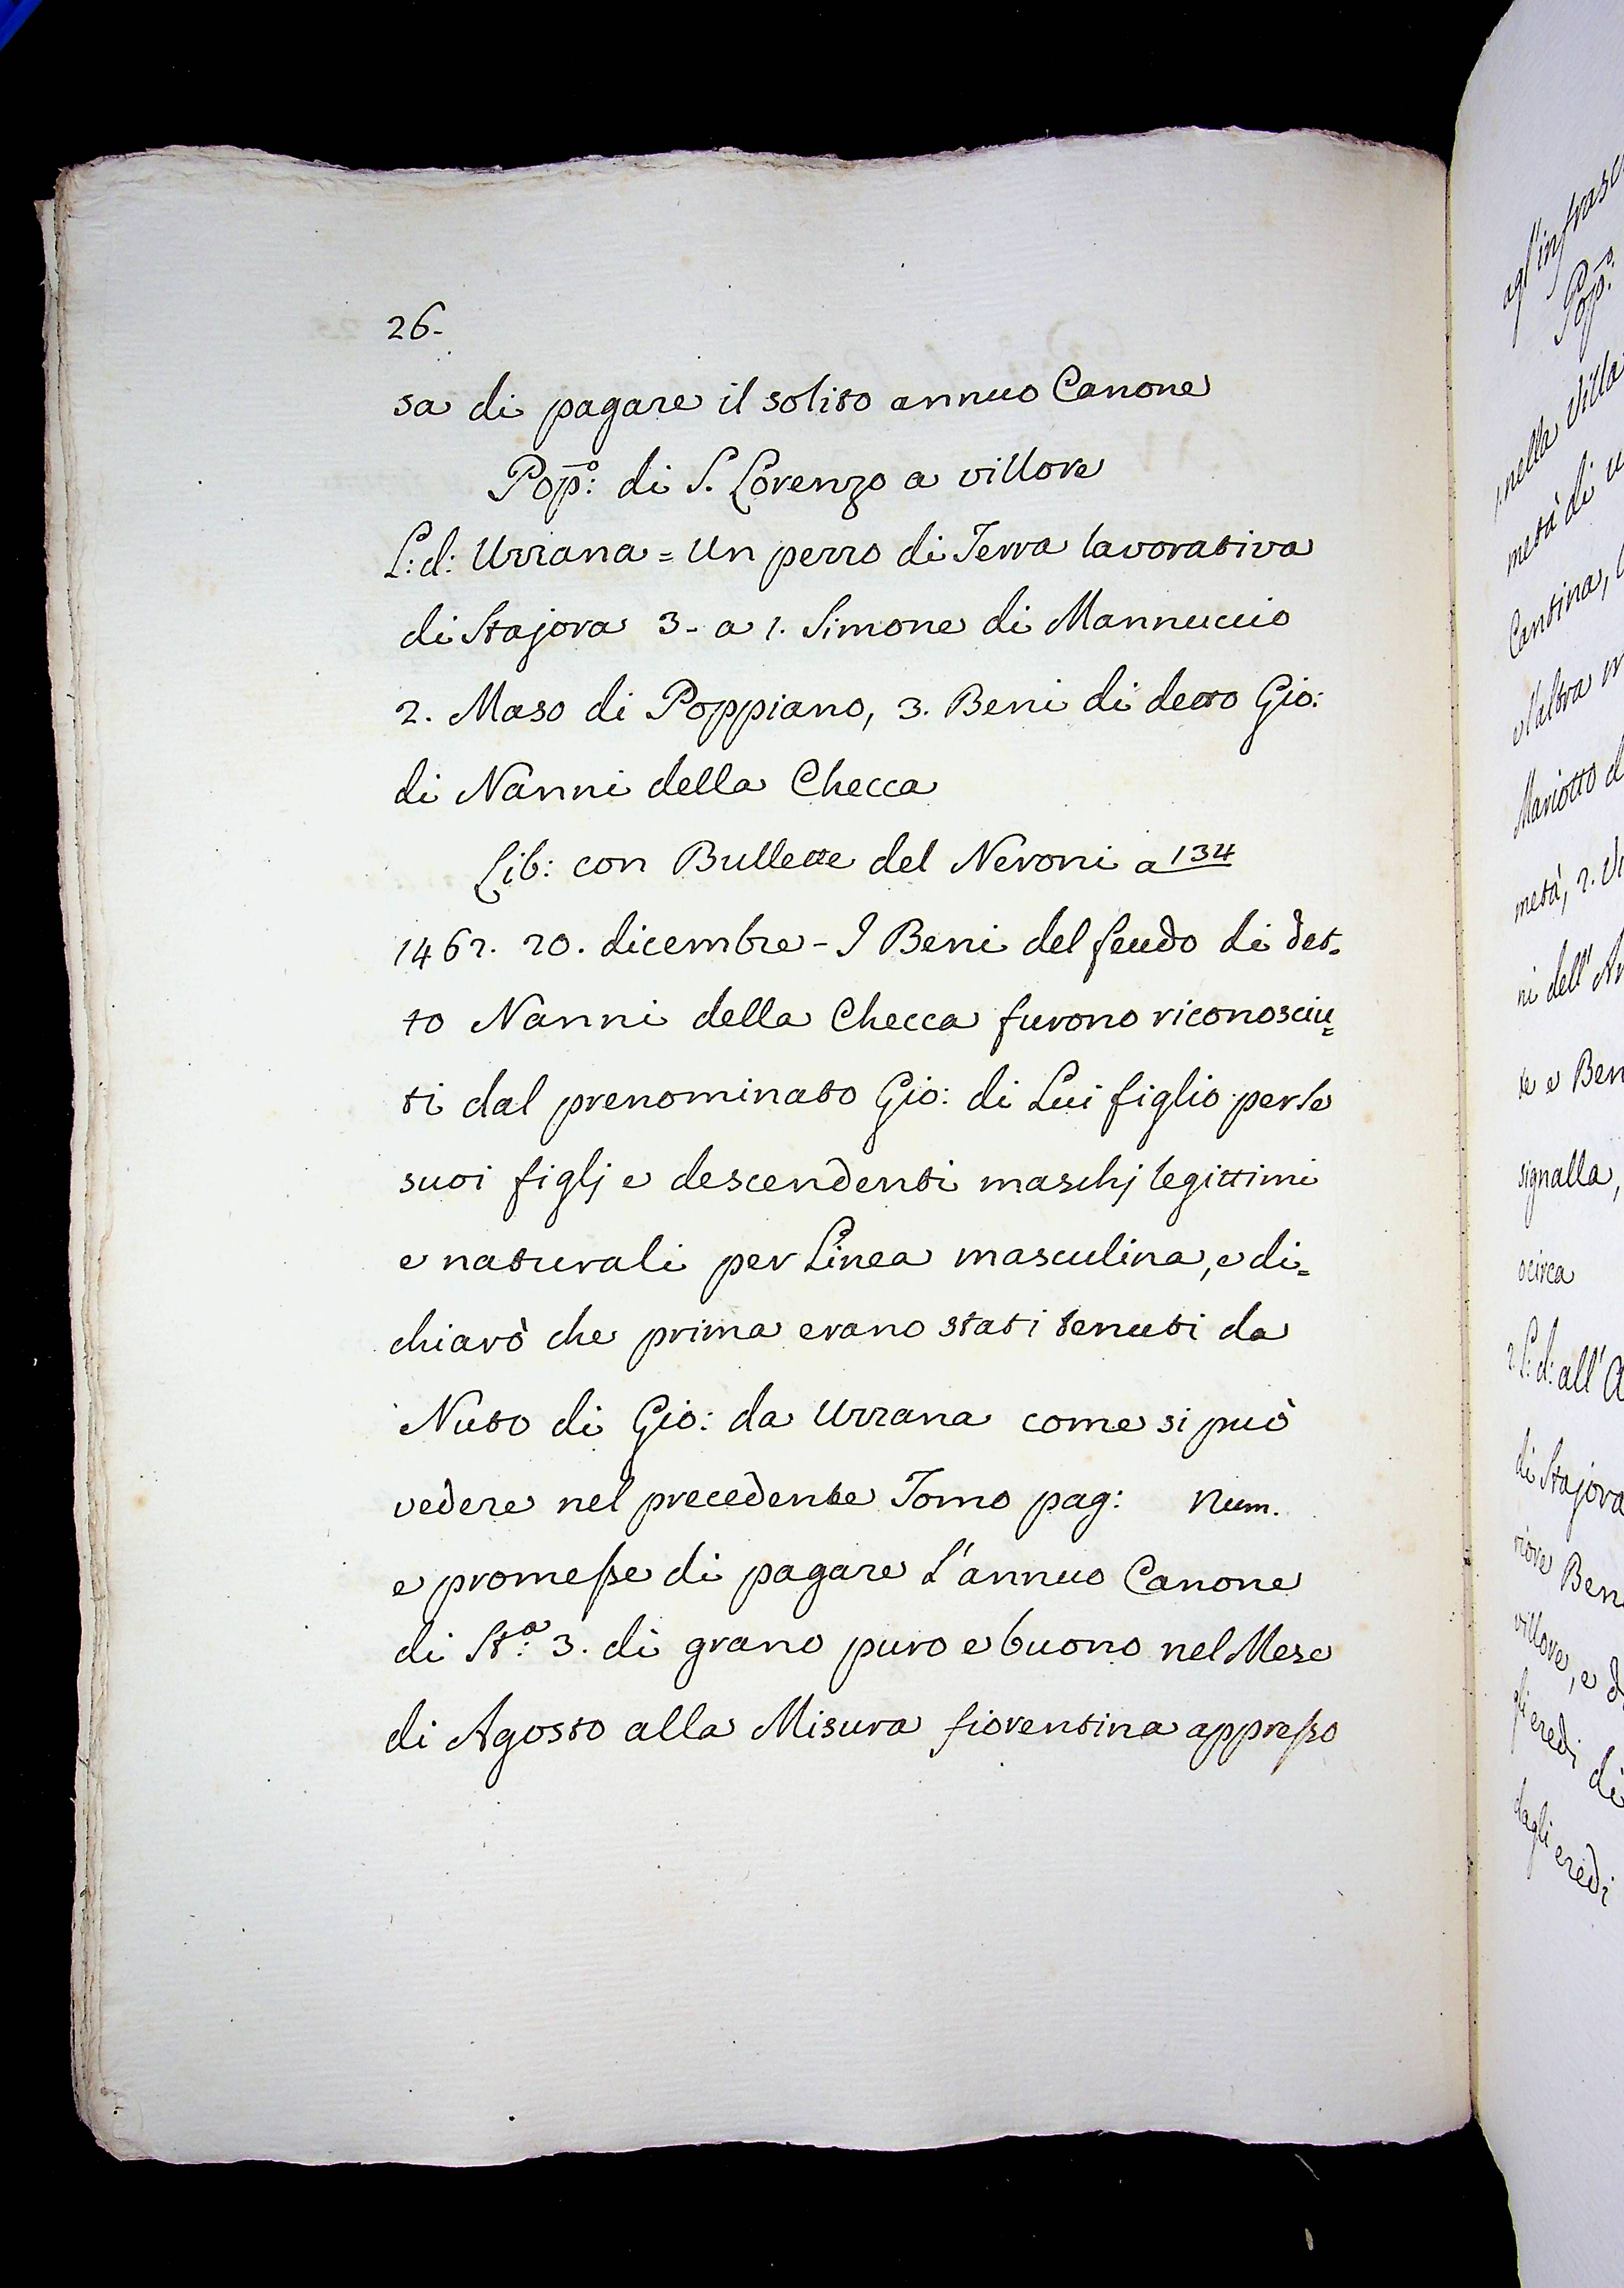 26.
sa di pagare il solito annuo Canone
Pop̄:º di S. Lorenzo a villore
L: d: Uzzana = Un pezzo di Terra lavorativa
di Stajora 3 - a 1. Simone di Mannuccio
2. Maso di Poppiano, 3. Beni di detto Gio:
di Nanni della Checca
Lib: con Bullette del Neroni a 134
1462. 20. dicembre - I Beni del feudo di det-
to Nanni della Checca furono riconosciu=
ti dal prenominato Gio: di Lui figlio per se
suoi figlj e descendenti maschj legittimi
e naturali per Linea masculina, e di=
chiarò che prima erano stati tenuti da
Nuto di Gio: da Uzzana come si può
vedere nel precedente Tomo pag: Num.
e promeße di pagare l'annuo Canone
di St:ª 3. di grano puro e buono nel Mese
di Agosto alla Misura fiorentina appreßo
Pop̄:º
nella Villa
metà di
Cantina,
e l'altra
Mariotto
metà, 2.
ni dell'
te e Ben
signalla,
o circa
2. L: d: all'
di Stajora
riore Ben
villore, e
gli eredi di
dagli eredi